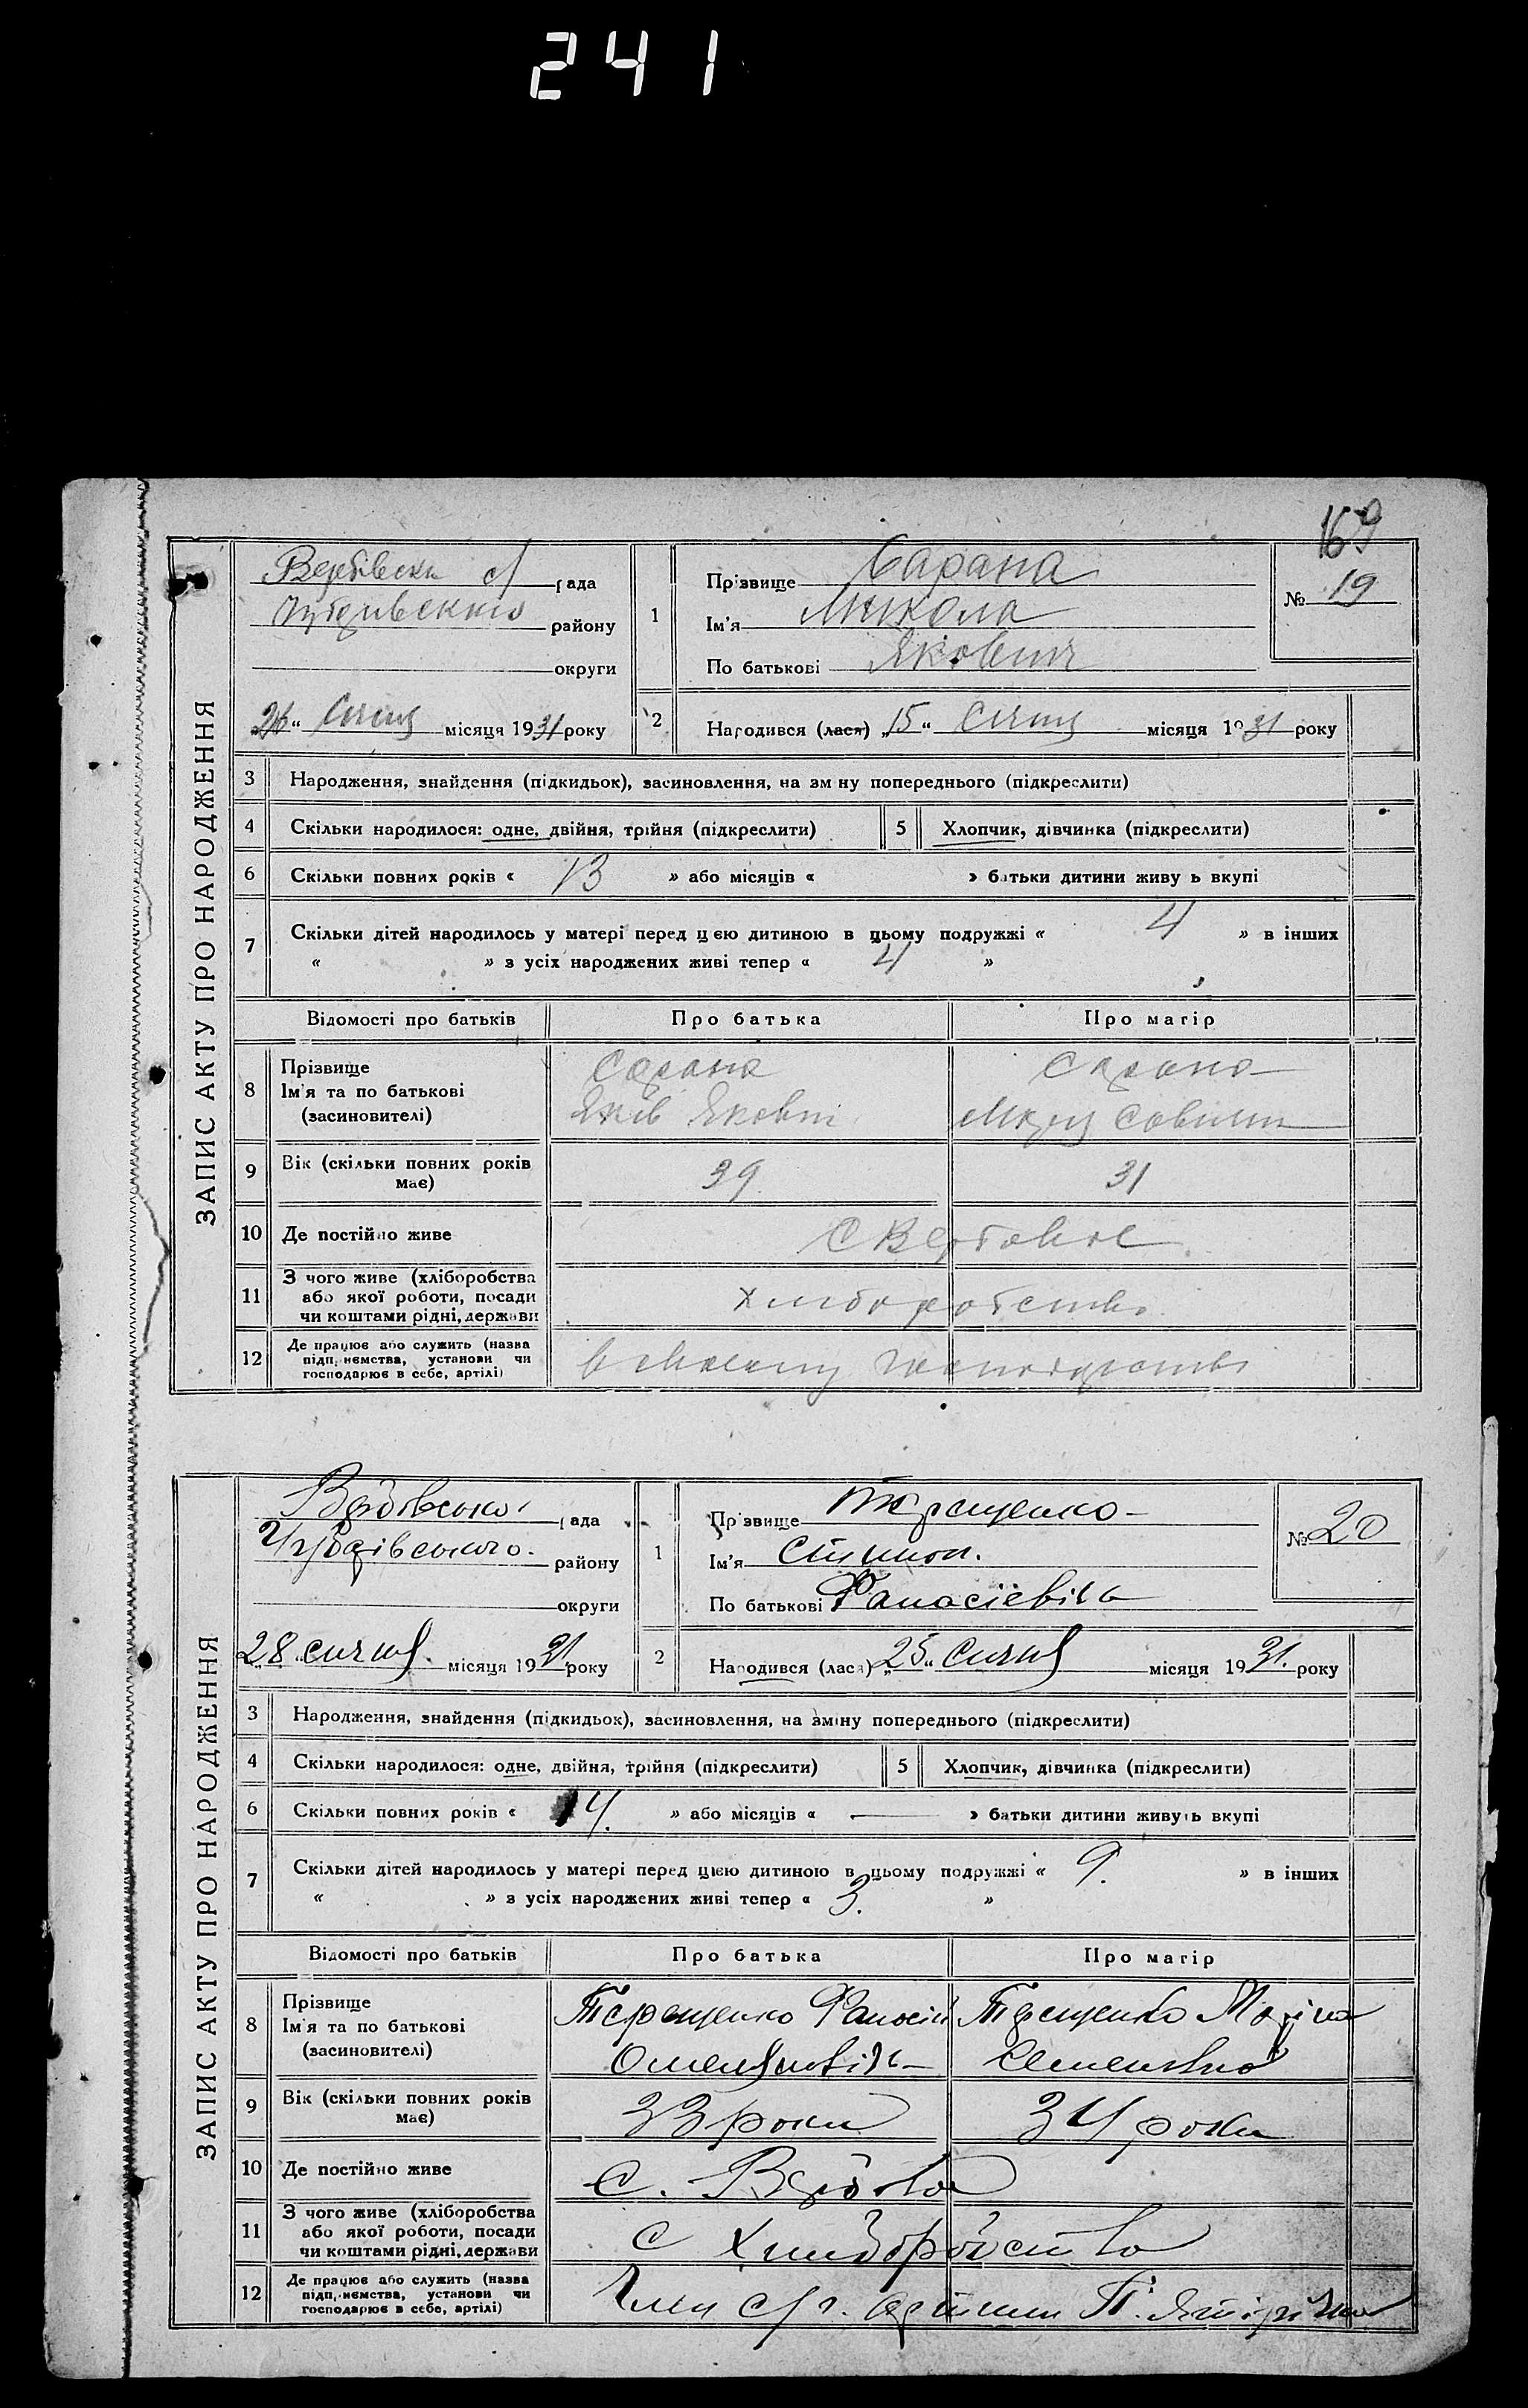 241
169
ЗАПИС АКТУ ПРО НАРОДЖЕННЯ
Вербівська с/ рада
Чубарівського району
округи
26 „ Січня місяця 1931 року
1
Прізвище Сарана
Ім'я Микола
По батькові Якович
№ 19
2 Народився (лася) „15“ Січня місяця 1931 року
3 Народження, знайдення (підкидьок), засиновлення, на зміну попереднього (підкреслити)
4 Скільки народилося: одне, двійня, трійня (підкреслити) 5 Хлопчик, дівчинка (підкреслити)
6 Скільки повних років « 13 » або місяців « » батьки дитини живуть вкупі
7 Скільки дітей народилось у матері перед цією дитиною в цьому подружжі « 4 » в інших
« » з усіх народжених живі тепер « 4 »
Відомості про батьків Про батька Про матір
8 Прізвище
Ім'я та по батькові
(засиновителі)
Сарана Сарана
Яків Якович
9 Вік (скільки повних років має) 39 31
10 Де постійно живе С Вербове
11 З чого живе (хліборобства
або якої роботи, посади
чи коштами рідні, держави
Хліборобство
12 Де працює або служить (назва
підприємства, установи чи
господарює в себе, артілі)
в власному господарстві
ЗАПИС АКТУ ПРО НАРОДЖЕННЯ
Вербовсько рада
Чубарівського району
округи
28 „ сичня місяця 1931 року
1
Прізвище Терещенко
Ім'я
По батькові Фанасієвіч
№ 20
2 Народився (лася) „25“ сичня місяця 1931. року
3 Народження, знайдення (підкидьок), засиновлення, на зміну попереднього (підкреслити)
4 Скільки народилося: одне, двійня, трійня (підкреслити) 5 Хлопчик, дівчинка (підкреслити)
6 Скільки повних років « 14. » або місяців « — » батьки дитини живуть вкупі
7 Скільки дітей народилось у матері перед цією дитиною в цьому подружжі « 9. » в інших
« » з усіх народжених живі тепер « 3. »
Відомості про батьків Про батька Про матір
8 Прізвище
Ім'я та по батькові
(засиновителі)
Терещенко Фанасій Терещенко
Омелянович Семеновна
9 Вік (скільки повних років має) 33 роки 34 роки
10 Де постійно живе С. Вербова
11 З чого живе (хліборобства
або якої роботи, посади
чи коштами рідні, держави
С Хлиборобство
12 Де працює або служить (назва
підприємства, установи чи
господарює в себе, артілі)
Член с/г. артили